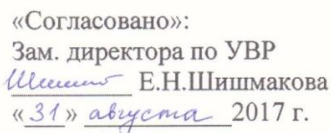 «Согласовано»:
Зам. директора по УВР
Е.Н.Шишмакова
«31» августа 2017 г.